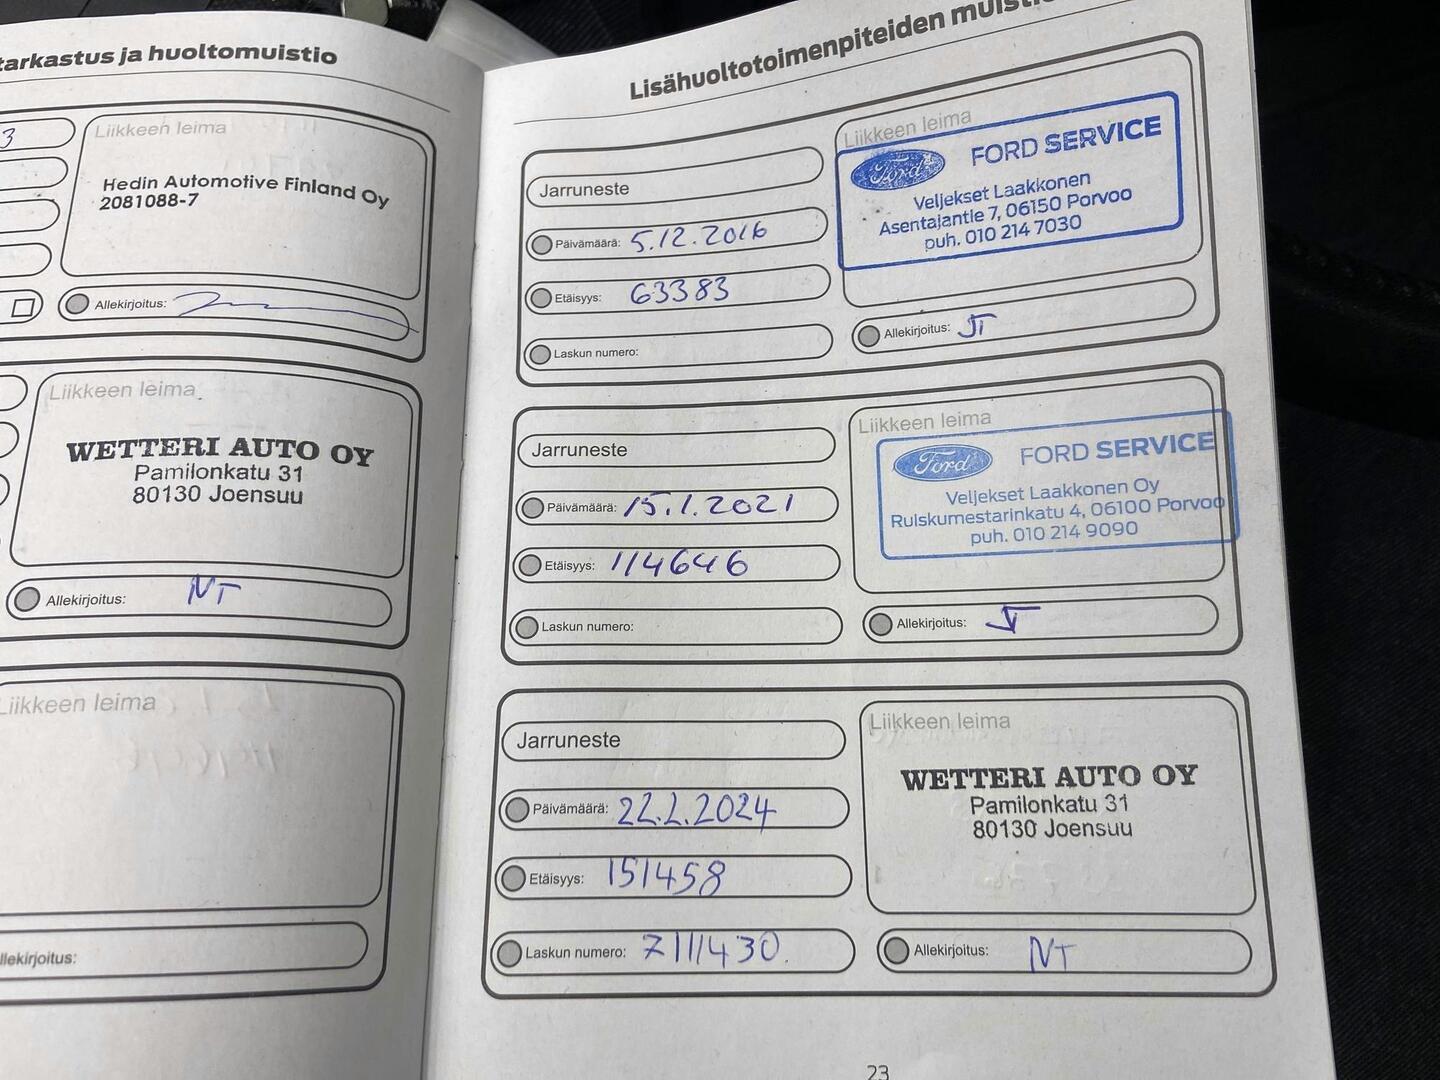 tarkastus ja huoltomuistio
3
Liikkeen leima
Hedin Automotive Finland Oy
2081088-7
Allekirjoitus:
Liikkeen leima
WETTERI AUTO OY
Pamilonkatu 31
80130 Joensuu
Allekirjoitus: NT
Liikkeen leima
Allekirjoitus:
Lisähuoltotoimenpiteiden
Jarruneste
Päivämäärä: 5.12.2016
Etäisyys: 63383
Laskun numero:
Liikkeen leima
Ford FORD SERVICE
Veljekset Laakkonen
Asentajantie 7, 06150 Porvoo
puh. 010 214 7030
Allekirjoitus: JT
Jarruneste
Päivämäärä: 15.1.2021
Etäisyys: 114646
Laskun numero:
Liikkeen leima
Ford FORD SERVICE
Veljekset Laakkonen Oy
Ruiskumestarinkatu 4, 06100 Porvoo
puh. 010 214 9090
Allekirjoitus: JT
Jarruneste
Päivämäärä: 22.2.2024
Etäisyys: 151458
Laskun numero: 7111430.
Liikkeen leima
WETTERI AUTO OY
Pamilonkatu 31
80130 Joensuu
Allekirjoitus: NT
23